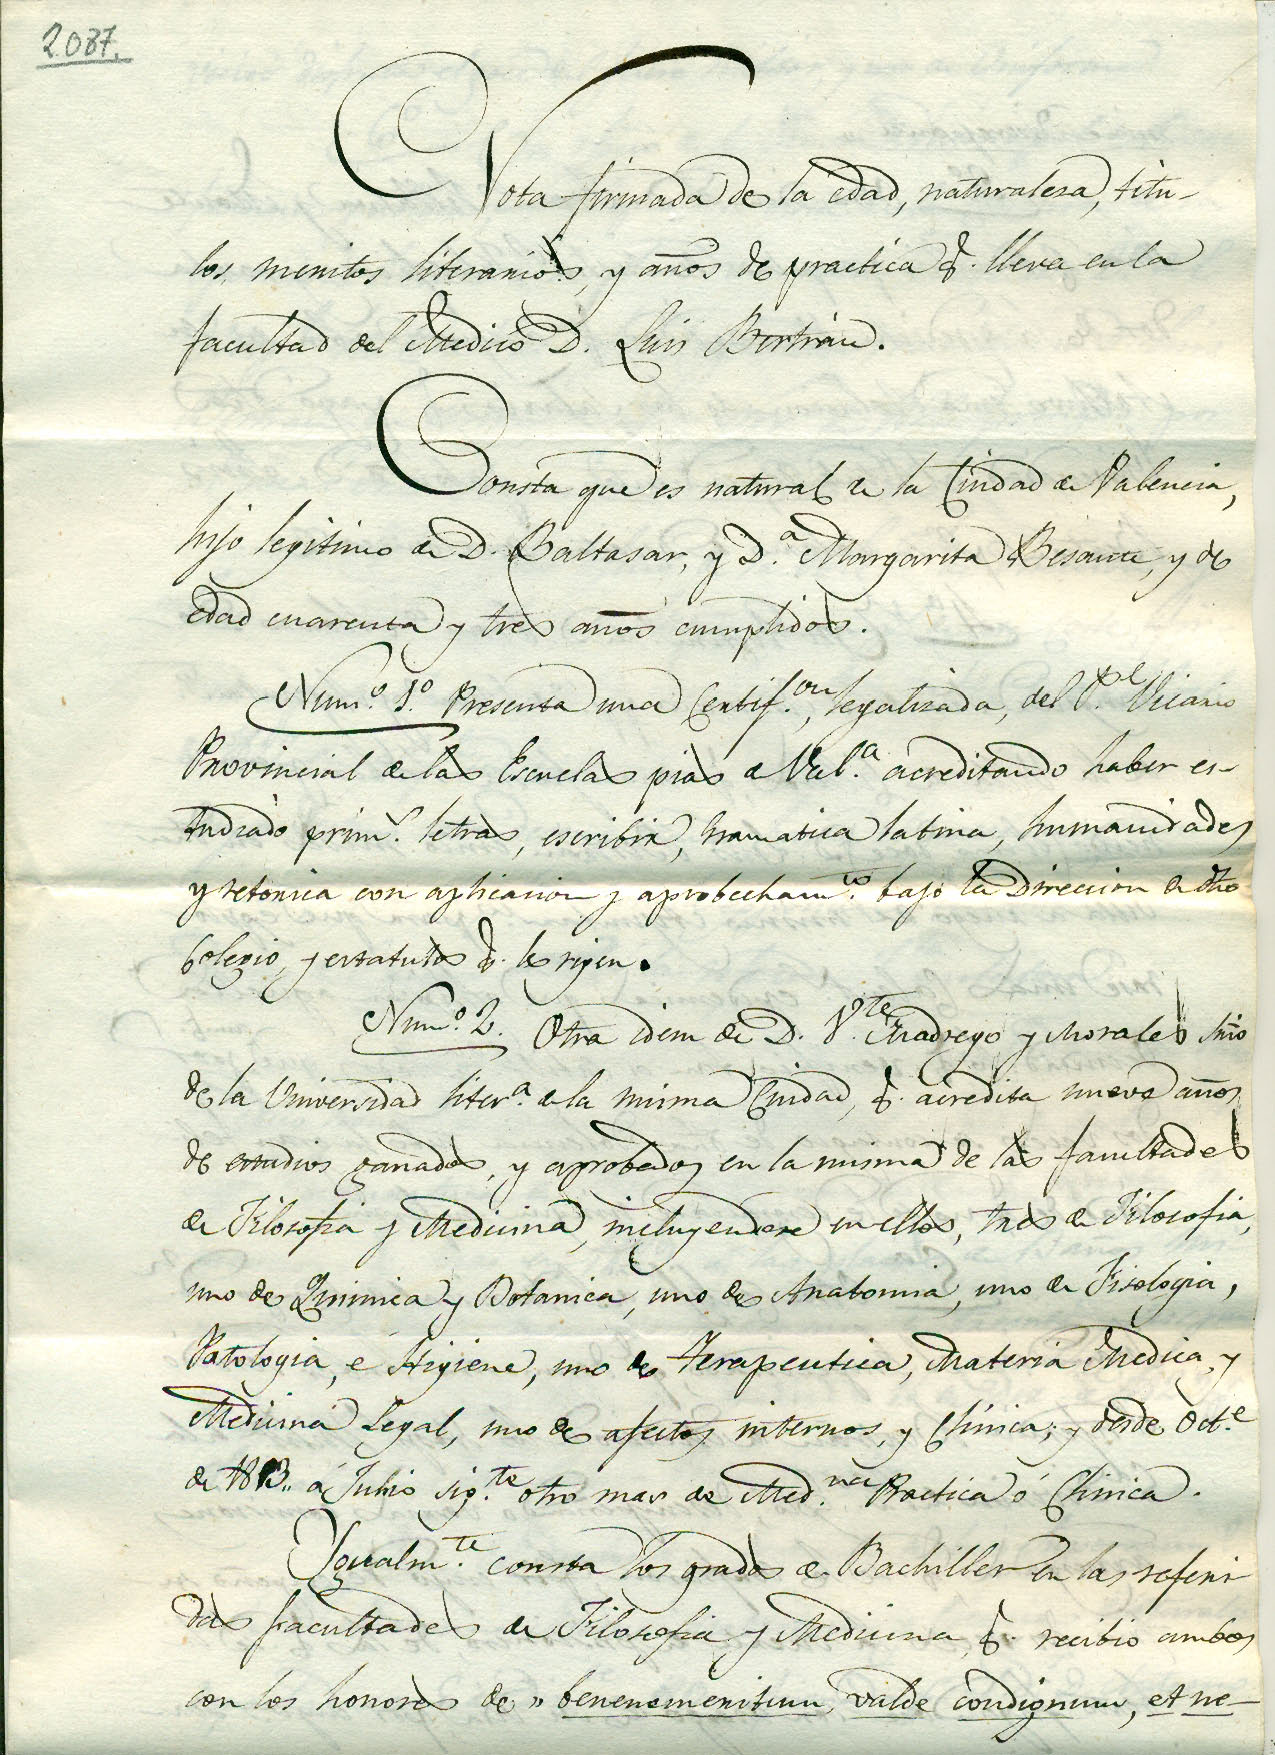 2.087.
Nota firmada de la edad, naturaleza, titu-
los, meritos literarios, y años de practica q. lleva en la
facultad del Medico D. Luis Bertran.
Consta que es natural de la Ciudad de Valencia,
hijo legitimo de D. Baltasar, y D.ª Margarita Besante, y de
edad cuarenta y tres años cumplidos.
Num.º 1.º Presenta una Certif.on, legalizada, del P.e Vicario
Provincial de las Escuelas pias de Val.ª acreditando haber es-
tudiado prim.s letras, escribir, Gramatica latina, humanidades
y retorica con aplicacion y aprobecham.to bajo la Direccion de dho
Colegio, y estatutos q. le rigen.
Num.º 2. Otra idem de D. V.te Madrego y Morales Srio
de la Universidad liter.ª de la misma Ciudad, q. acredita nueve años
de estudios ganados, y aprobados en la misma de las facultades
de Filosofia y Medicina, incluyendose en ellos, tres de Filosofia,
uno de Quimica y Botanica, uno de Anatomia, uno de Fisologia,
Patologia, é Higiene, uno de Terapeutica, Materia Medica, y
Medicina Legal, uno de afectos internos, y Clinica; y desde Oct.e
de 1813,, á Julio sig.te otro mas de Med.na Practica ó Clinica.
Igualm.te consta los grados de Bachiller en las referi
das facultades de Filosofia y Medicina, q. recibio ambos
con los honores de » benenemeritum, valde condignum, et ne-